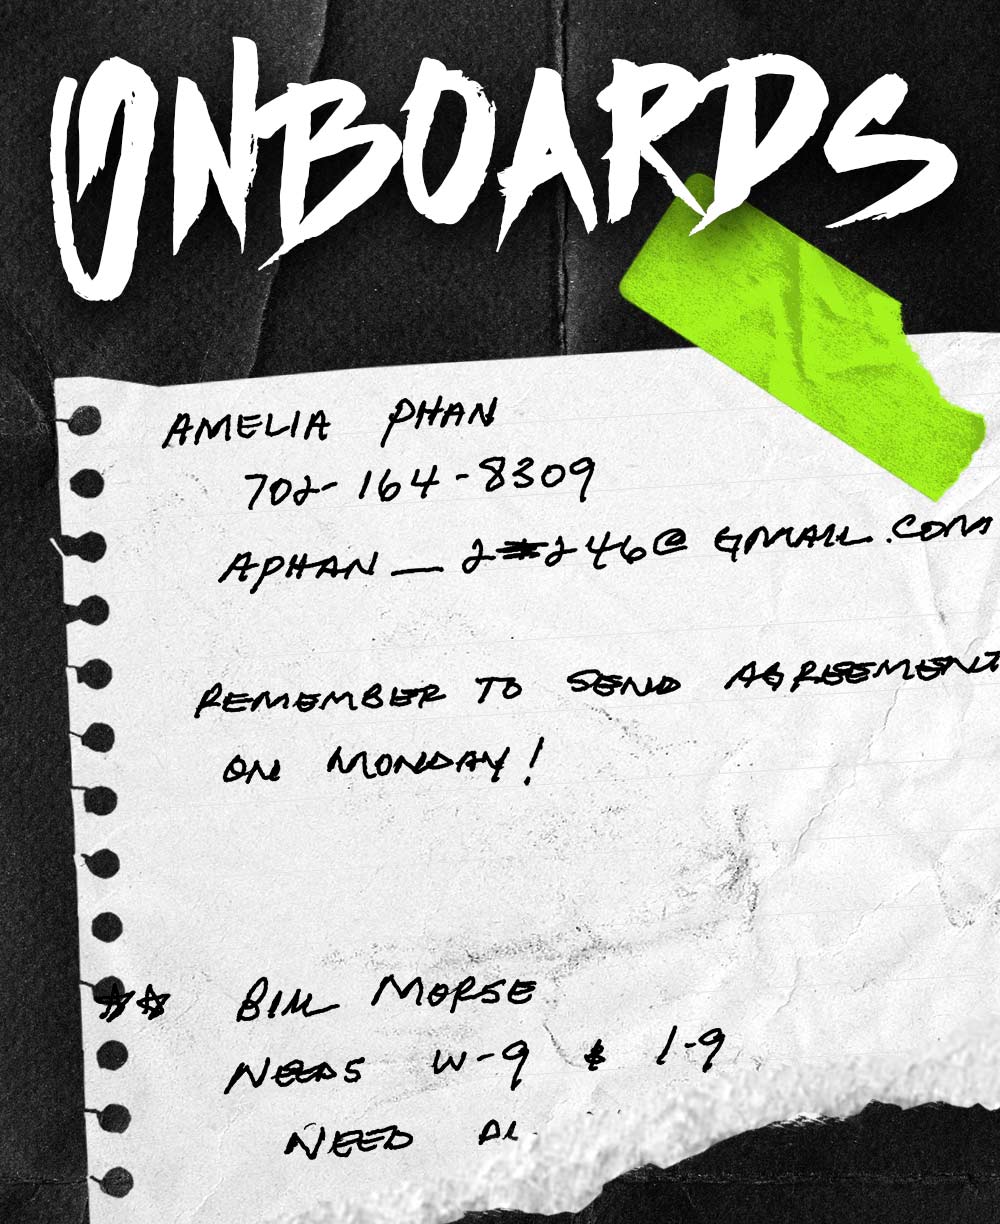 ONBOARDS
AMELIA PHAN
702-164-8309
APHAN_2246@GMAIL.COM
REMEMBER TO SEND AGREEMENT
ON MONDAY!
BILL MORSE
NEEDS W-9 & I-9
NEED